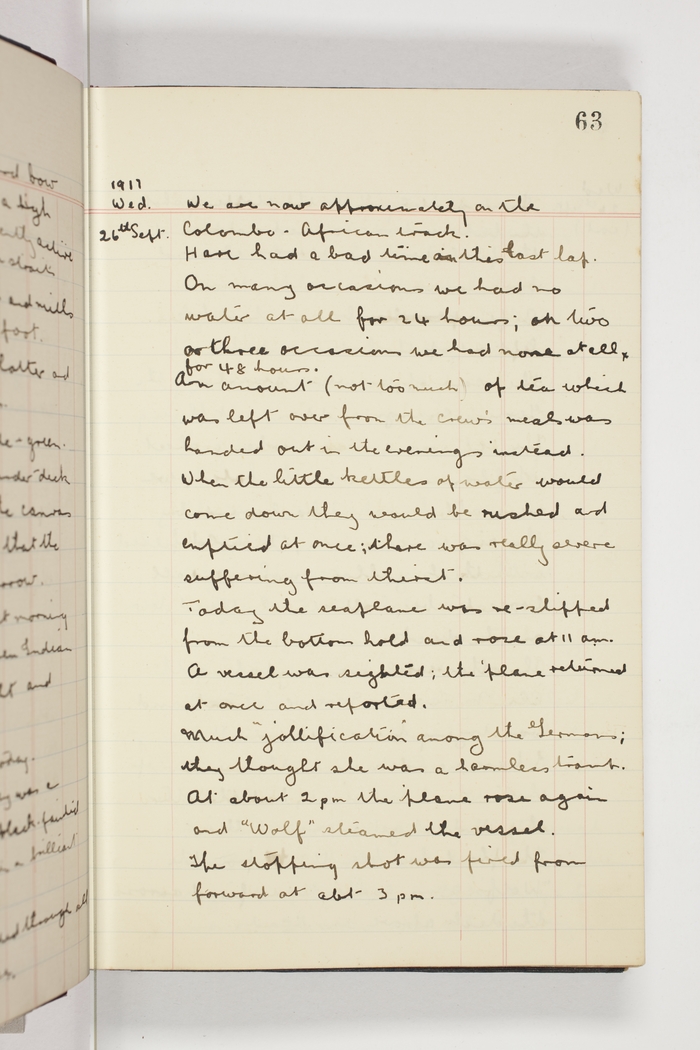 63
1917
Wed. We are now approximately on the
26th Sept. Colombo - African track.
Have had a bad time in this last lap.
On many occasions we had no
water at all for 24 hours; on two
or three occasions we had none at all
for 48 hours.
An amount (not too much) of tea which
was left over from the crew's meals was
handed out in the evenings instead.
When the little kettles of water would
come down they would be rushed and
emptied at once; there was really severe
suffering from thirst.
Today the seaplane was re-shipped
from the bottom hold and rose at 11 am.
A vessel was sighted; the 'plane returned
at once and reported.
Much "jollification" among the Germans;
they thought she was a harmless tramp.
At about 2 pm the 'plane rose again
and "Wolf" steamed the vessel.
The stopping shot was fired from
forward at abt 3 pm.
and bow
a high
and mills
foot.
latter and
de-green.
under deck
the canvas
that the
morning
Indian
and
was a
a brilliant
through all